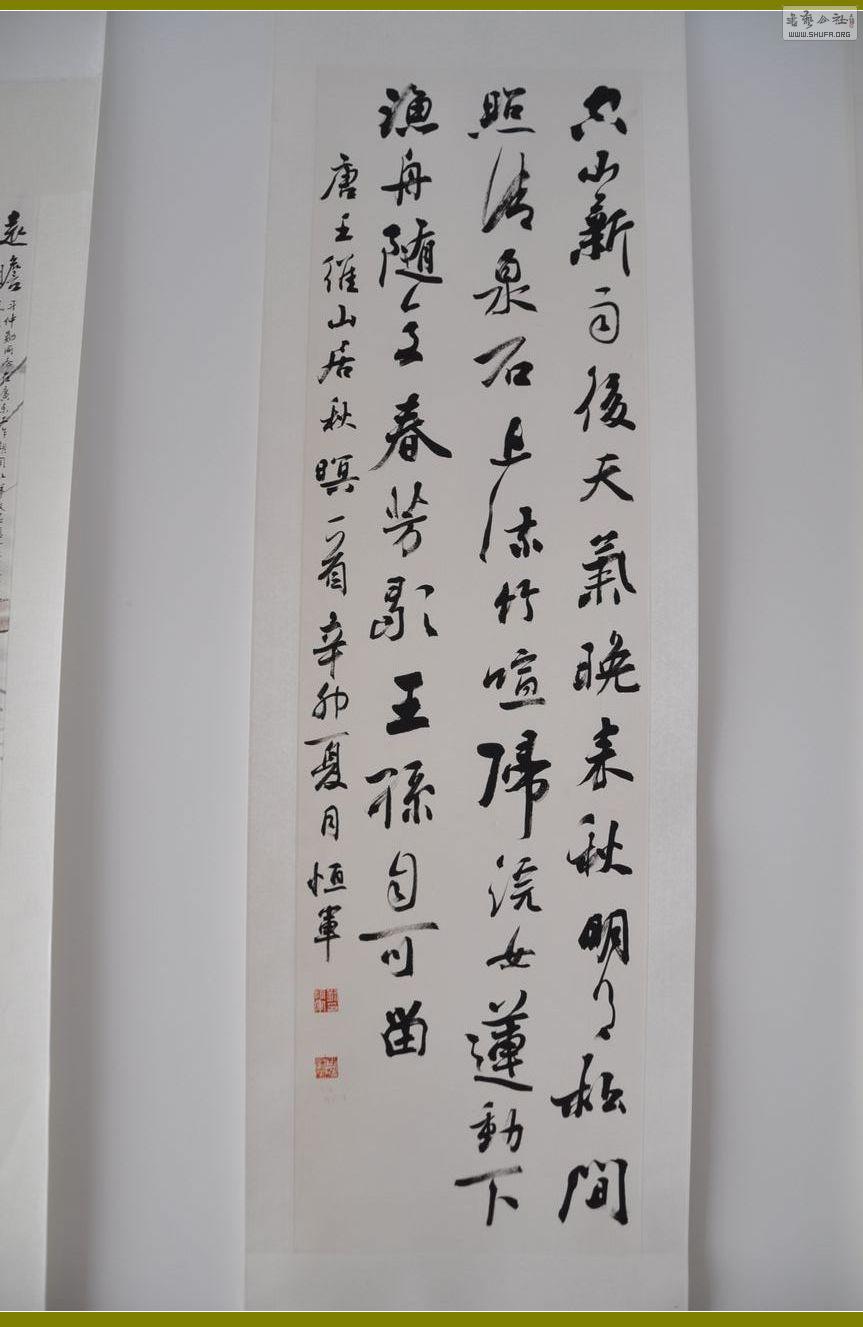 空山新雨後天氣晚来秋明月松間
照清泉石上流竹喧歸浣女蓮動下
漁舟随意春芳歇王孫自可留
唐王維山居秋暝一首辛卯夏月恒軍
遠瞻
書藝公社
WWW.SHUFA.ORG